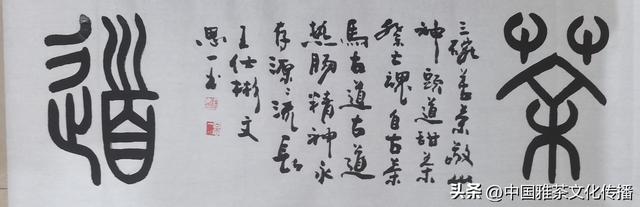 茶
三碗 茶敬
神頭道甜茶
祭士魂自古茶
馬古道古道
熱腸精神永
存源々流長
王仕彬文
思一书
道
头条 @中国雅茶文化传播